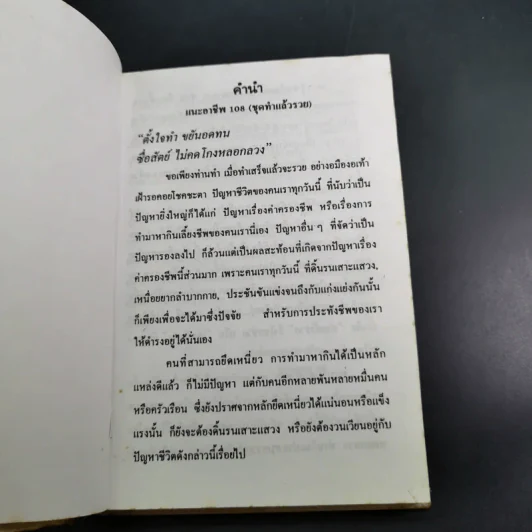 คำนำ
แนะอาชีพ 108 (ชุดทำแล้วรวย)
"ตั้งใจทำ ขยันอดทน
ซื่อสัตย์ ไม่คดโกงหลอกลวง"
ขอเพียงท่านทำ เมื่อทำเสร็จแล้วจะรวย อย่างอมืองอเท้า
เฝ้ารอคอยโชคชะตา ปัญหาชีวิตของคนเราทุกวันนี้ ที่นับว่าเป็น
ปัญหายิ่งใหญ่ก็ได้แก่ ปัญหาเรื่องค่าครองชีพ หรือเรื่องการ
ทำมาหากินเลี้ยงชีพของคนเรานี่เอง ปัญหาอื่น ๆ ที่จัดว่าเป็น
ปัญหารองลงไป ก็ล้วนแต่เป็นผลสะท้อนที่เกิดจากปัญหาเรื่อง
ค่าครองชีพนี้ส่วนมาก เพราะคนเราทุกวันนี้ ที่ดิ้นรนเสาะแสวง,
เหนื่อยยากลำบากกาย, ประชันขันแข่งจนถึงกับแก่งแย่งกันนั้น
ก็เพียงเพื่อจะได้มาซึ่งปัจจัย สำหรับการประทังชีพของเรา
ให้ดำรงอยู่ได้นั่นเอง
คนที่สามารถยึดเหนี่ยว การทำมาหากินได้เป็นหลัก
แหล่งดีแล้ว ก็ไม่มีปัญหา แต่กับคนอีกหลายพันหลายหมื่นคน
หรือครัวเรือน ซึ่งยังปราศจากหลักยึดเหนี่ยวได้แน่นอนหรือแข็ง
แรงนั้น ก็ยังจะต้องดิ้นรนเสาะแสวง หรือยังต้องวนเวียนอยู่กับ
ปัญหาชีวิตดังกล่าวนี้เรื่อยไป